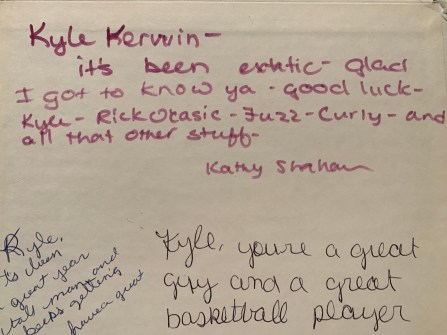 Kyle Kerwin -
it's been exotic - Glad
I got to know ya - good luck -
Kyle - Rick Ocasic - Fuzz - Curly - and
all that other stuff -
Kathy
Kyle,
been
great year
man and
getting
have a great
Kyle, you're a great
guy and a great
basketball player